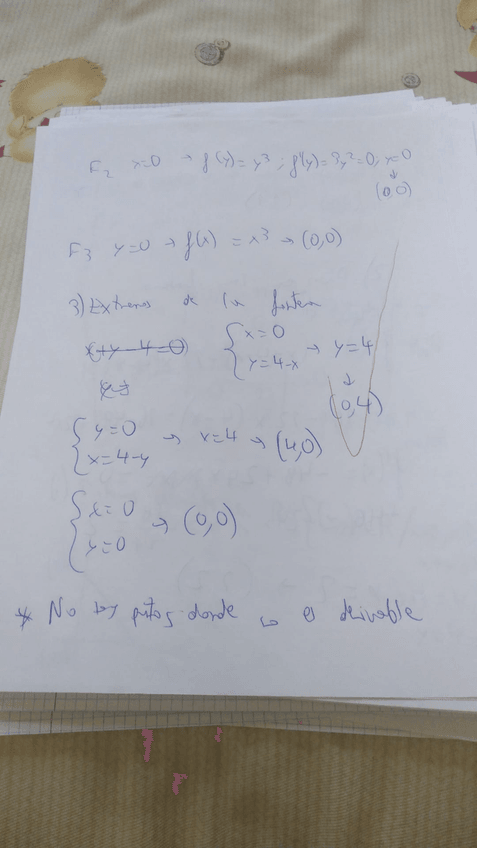 F₂ x=0 → f(y) = y³ ; f'(y) = 3y² = 0; y=0
↓
(0,0)
F₃ y=0 → f(x) = x³ → (0,0)
3) Extremos de la frontera
x+y-4=0
{ x=0
{ y=4-x → y=4
↓
(0,4)
{ y=0
{ x=4-y → x=4 → (4,0)
{ x=0
{ y=0 → (0,0)
* No hay ptos donde no es derivable